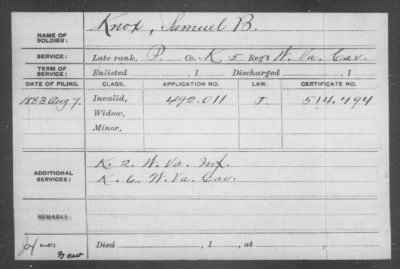 NAME OF SOLDIER: Knox, Samuel B.
SERVICE: Late rank, P. Co. K, 5 Reg't W. Va. Cav.
TERM OF SERVICE: Enlisted , 1 Discharged , 1
DATE OF FILING. CLASS. APPLICATION NO. LAW. CERTIFICATE NO.
1883 Aug 7. Invalid, 492.011 J 514.494
Widow,
Minor,
ADDITIONAL SERVICES: K. 2. W. Va. Inf.
K. 6. W. Va. Cav.
REMARKS:
Died , 1 , at